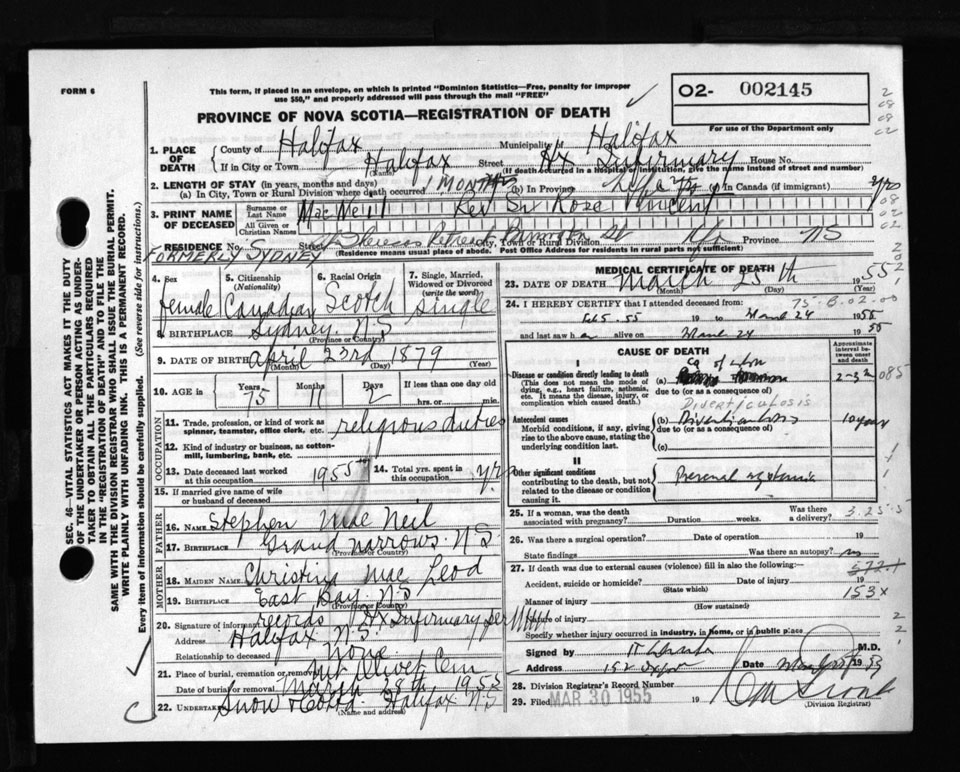 FORM 6
This form, if placed in an envelope, on which is printed "Dominion Statistics—Free, penalty for improper
use $50," and properly addressed will pass through the mail "FREE"
O2- 002145
For use of the Department only
PROVINCE OF NOVA SCOTIA—REGISTRATION OF DEATH
1. PLACE OF DEATH
County of Halifax Municipality of Halifax
If in City or Town Halifax (Name) Street Hx Infirmary House No.
(If death occurred in a Hospital or Institution, give the name instead of street and number)
2. LENGTH OF STAY (in years, months and days)
(a) In City, Town or Rural Division where death occurred 1 Month (b) In Province (c) In Canada (if immigrant)
3. PRINT NAME OF DECEASED
Surname or Last Name MacNeil
All Given or Christian Names Rev Sr Rose Vincent
RESIDENCE No. S Street City, Town or Rural Division Hfx Province NS
(Residence means usual place of abode. Post Office Address for residents in rural parts not sufficient)
FORMERLY SYDNEY
4. Sex female
5. Citizenship (Nationality) Canadian
6. Racial Origin Scotch
7. Single, Married, Widowed or Divorced (write the word) Single
8. BIRTHPLACE Sydney. N.S (Province or Country)
9. DATE OF BIRTH April 23rd 1879
(Month) (Day) (Year)
10. AGE in Years 75 Months 11 Days 2 If less than one day old
hrs. or min.
OCCUPATION
11. Trade, profession, or kind of work as spinner, teamster, office clerk, etc. religious duties
12. Kind of industry or business, as cotton-mill, lumbering, bank, etc.
13. Date deceased last worked at this occupation 1955
14. Total yrs. spent in this occupation yrs
15. If married give name of wife or husband of deceased
FATHER
16. NAME Stephen Mac Neil
17. BIRTHPLACE Grand narrows. N.S (Province or Country)
MOTHER
18. MAIDEN NAME Christina Mac Leod
19. BIRTHPLACE East Bay. N.S (Province or Country)
20. Signature of informant records Hx Infirmary per
Address Halifax N.S.
Relationship to deceased None
21. Place of burial, cremation or removal Mt Olivet Cem
Date of burial or removal March 28th, 1955
22. UNDERTAKER Snow & Co Ltd. Halifax N.S
(Name and address)
MEDICAL CERTIFICATE OF DEATH
23. DATE OF DEATH March 25th 1955
(Month) (Day) (Year)
24. I HEREBY CERTIFY that I attended deceased from:
Feb 5. 55 to March 24 1955
and last saw h er alive on March 24 1955
CAUSE OF DEATH
Approximate interval between onset and death
I
Disease or condition directly leading to death
(This does not mean the mode of dying, e.g., heart failure, asthenia, etc. It means the disease, injury, or complication which caused death.)
(a) Ca of
due to (or as a consequence of)
Diverticulosis
Antecedent causes
Morbid conditions, if any, giving rise to the above cause, stating the underlying condition last.
(b) Diverticulosis 10 years
due to (or as a consequence of)
(c)
II
Other significant conditions
contributing to the death, but not related to the disease or condition causing it.
25. If a woman, was the death associated with pregnancy? Duration weeks. Was there a delivery?
3.25.5
26. Was there a surgical operation? Date of operation 19
State findings Was there an autopsy? no
27. If death was due to external causes (violence) fill in also the following:—
577.1
Accident, suicide or homicide? Date of injury 19
(State which)
153X
Manner of injury
(How sustained)
Nature of injury
Specify whether injury occurred in industry, in home, or in public place
Signed by M.D.
Address 152 Date 1955
28. Division Registrar's Record Number
29. Filed MAR 30 1955 19
(Division Registrar)
SEC. 46—VITAL STATISTICS ACT MAKES IT THE DUTY
OF THE UNDERTAKER OR PERSON ACTING AS UNDER-
TAKER TO OBTAIN ALL THE PARTICULARS REQUIRED
IN THE "REGISTRATION OF DEATH" AND TO FILE THE
SAME WITH THE DIVISION REGISTRAR WHO SHALL ISSUE THE BURIAL PERMIT.
WRITE PLAINLY WITH UNFADING INK. THIS IS A PERMANENT RECORD.
Every item of information should be carefully supplied. (See reverse side for instructions.)